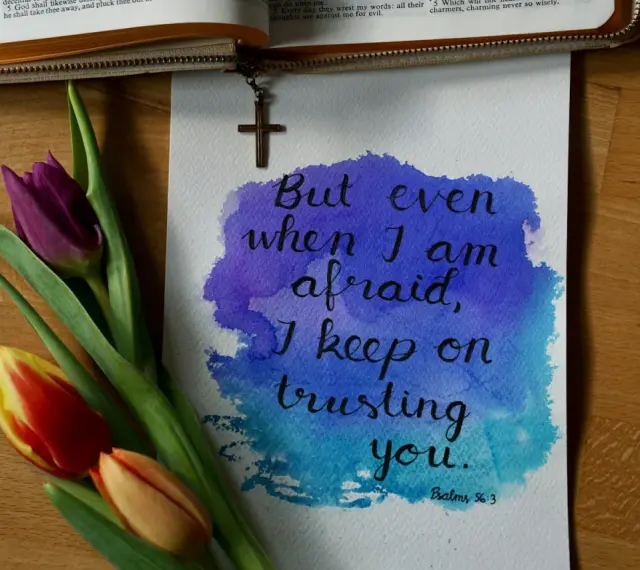 5 God shall likewise
he shall take thee away, and pluck thee out
5 Every day they wrest my words: all their
thoughts are against me for evil.
5 Which will not
charmers, charming never so wisely.
But even
when I am
afraid,
I keep on
trusting
you.
Psalms 56:3